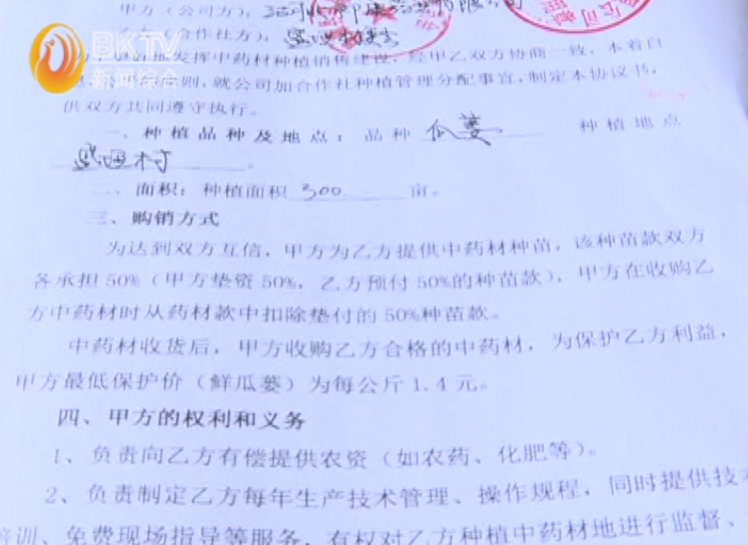 BKTV
新闻综合
甲方（公司方）：
合作社方）：
发挥中药材种植销售建设，经甲乙双方协商一致，本着自
则，就公司加合作社种植管理分配事宜，制定本协议书，
供双方共同遵守执行。
一、种植品种及地点：品种 瓜蒌 种植地点
村。
二、面积：种植面积 300 亩。
三、购销方式
为达到双方互信，甲方为乙方提供中药材种苗，该种苗款双方
各承担50%（甲方垫资50%，乙方预付50%的种苗款），甲方在收购乙
方中药材时从药材款中扣除垫付的50%种苗款。
中药材收货后，甲方收购乙方合格的中药材，为保护乙方利益，
甲方最低保护价（鲜瓜蒌）为每公斤1.4元。
四、甲方的权利和义务
1、负责向乙方有偿提供农资（如农药、化肥等）。
2、负责制定乙方每年生产技术管理、操作规程，同时提供技术
培训、免费现场指导等服务，有权对乙方种植中药材地进行监督、